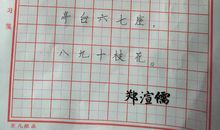 亭台六七座，
八九十枝花。
郑渲儒